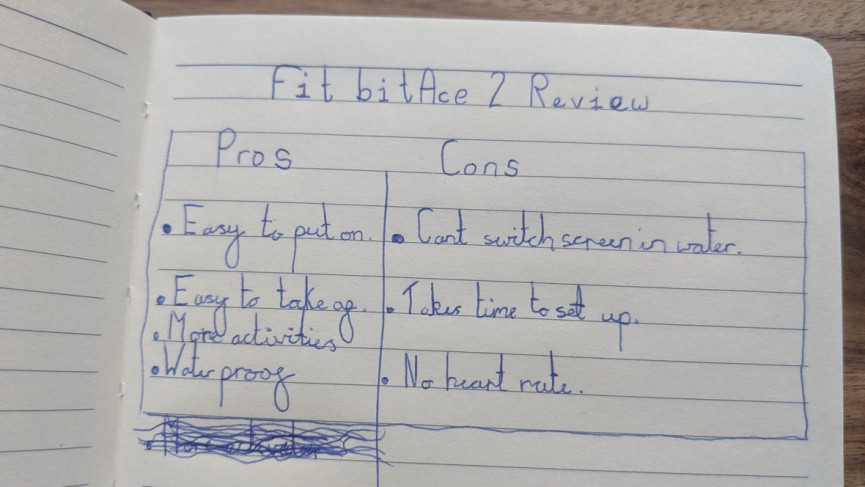 Fit bitAce 2 Review
Pros
Cons
• Easy to put on.
• Cant switch screen in water.
• Easy to take of.
• Takes time to set up.
• More activities
• Water proof
• No heart rate.